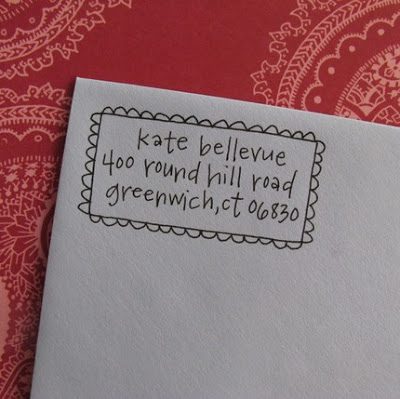 kate bellevue
400 round hill road
greenwich, ct 06830